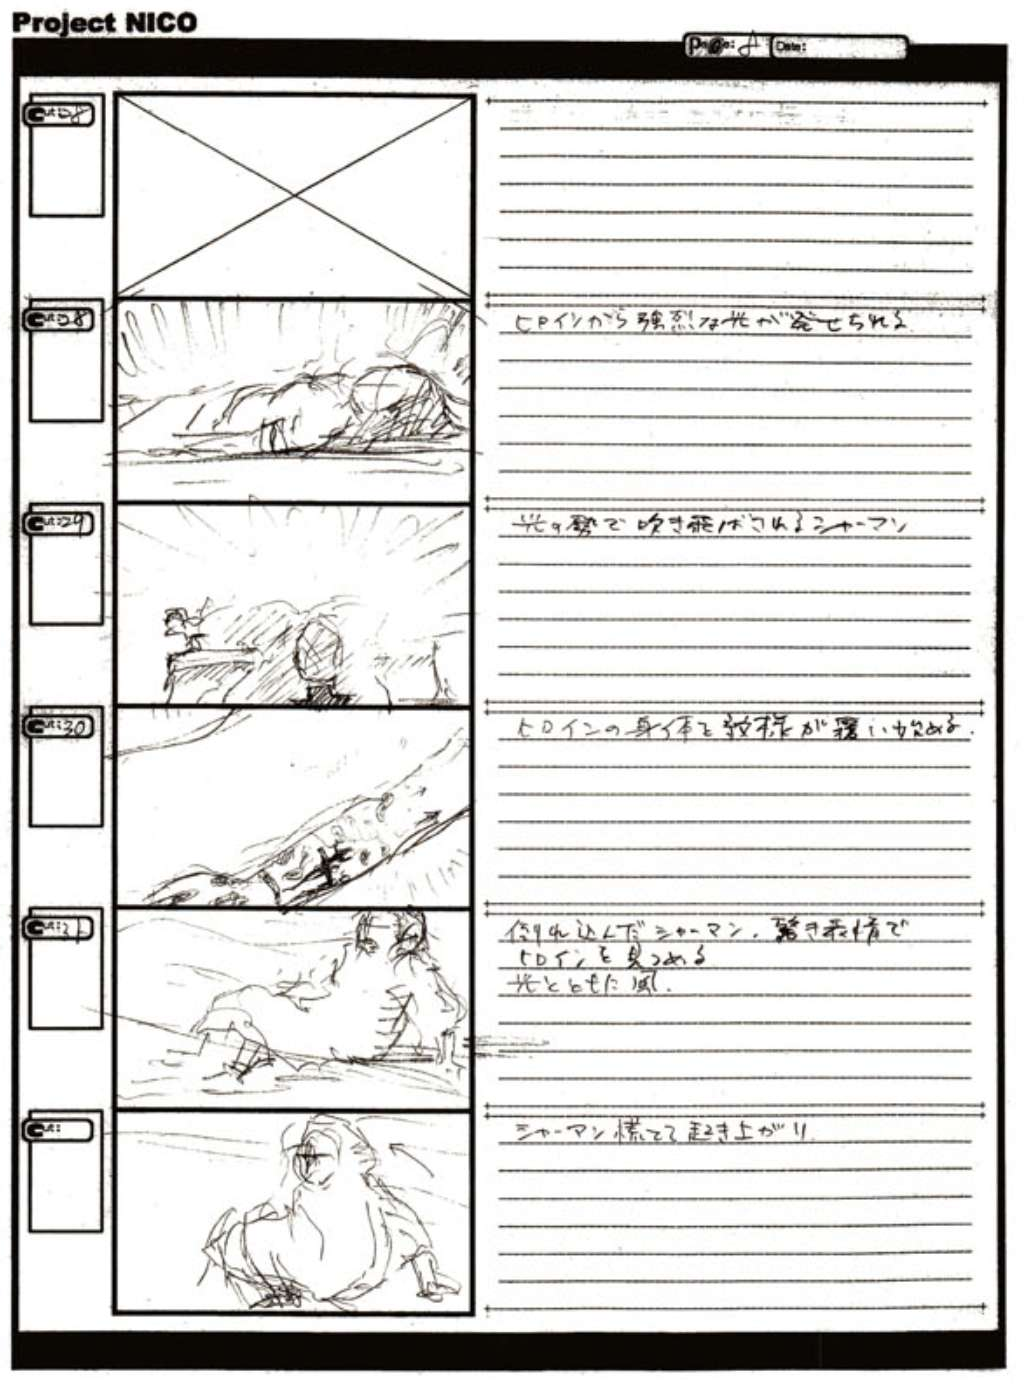 Project NICO
Page: 8 Date:
Cut: 28
Cut: 28
ヒロインから強烈な光が発せられる
Cut: 29
光の勢で吹き飛ばされるシャーマン
Cut: 30
ヒロインの身体を紋様が覆い始める.
Cut: 31
倒れ込んだシャーマン、驚き表情で
ヒロインを見つめる
光とともに風.
Cut:
シャーマン慌てて起き上がり